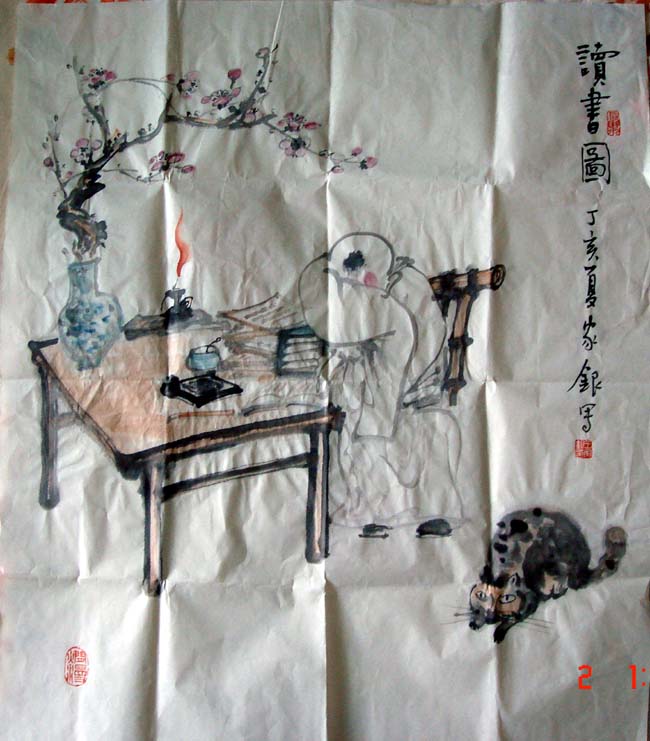 讀書圖
丁亥夏家銀寫
2 1: